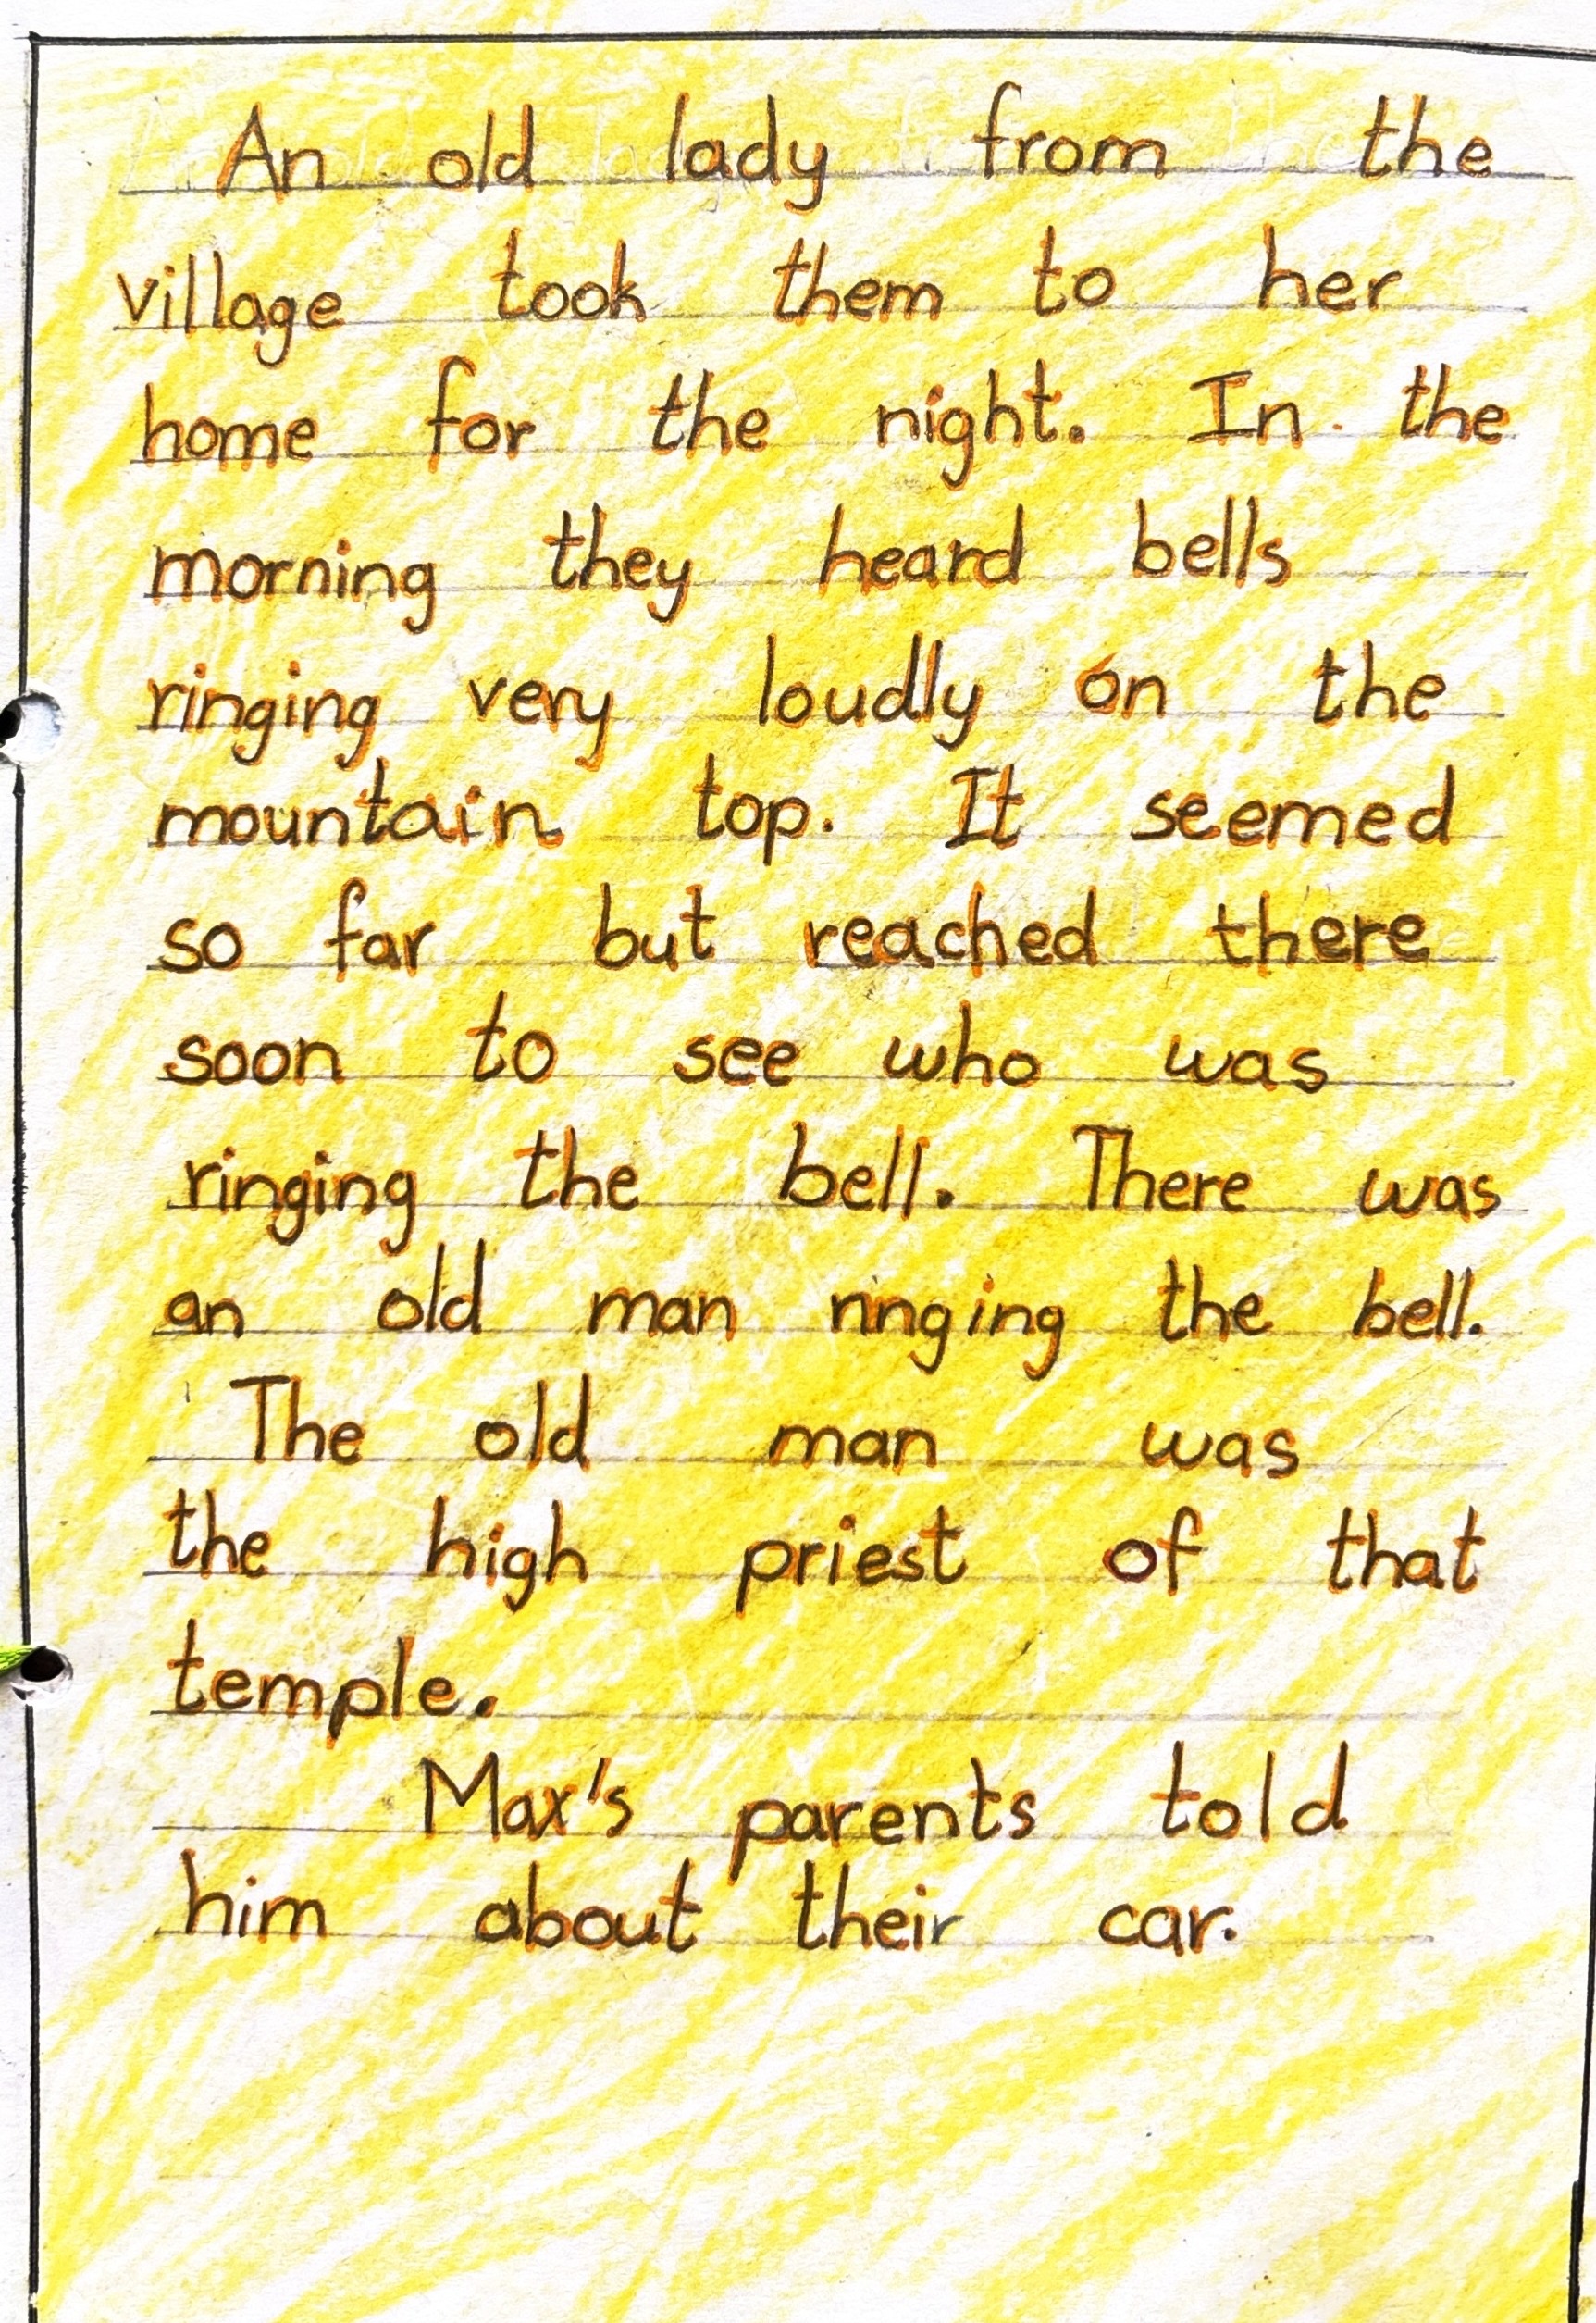 An old lady from the
village took them to her
home for the night. In the
morning they heard bells
ringing very loudly on the
mountain top. It seemed
so far but reached there
soon to see who was
ringing the bell. There was
an old man ringing the bell.
The old man was
the high priest of that
temple.
Max's parents told
him about their car.